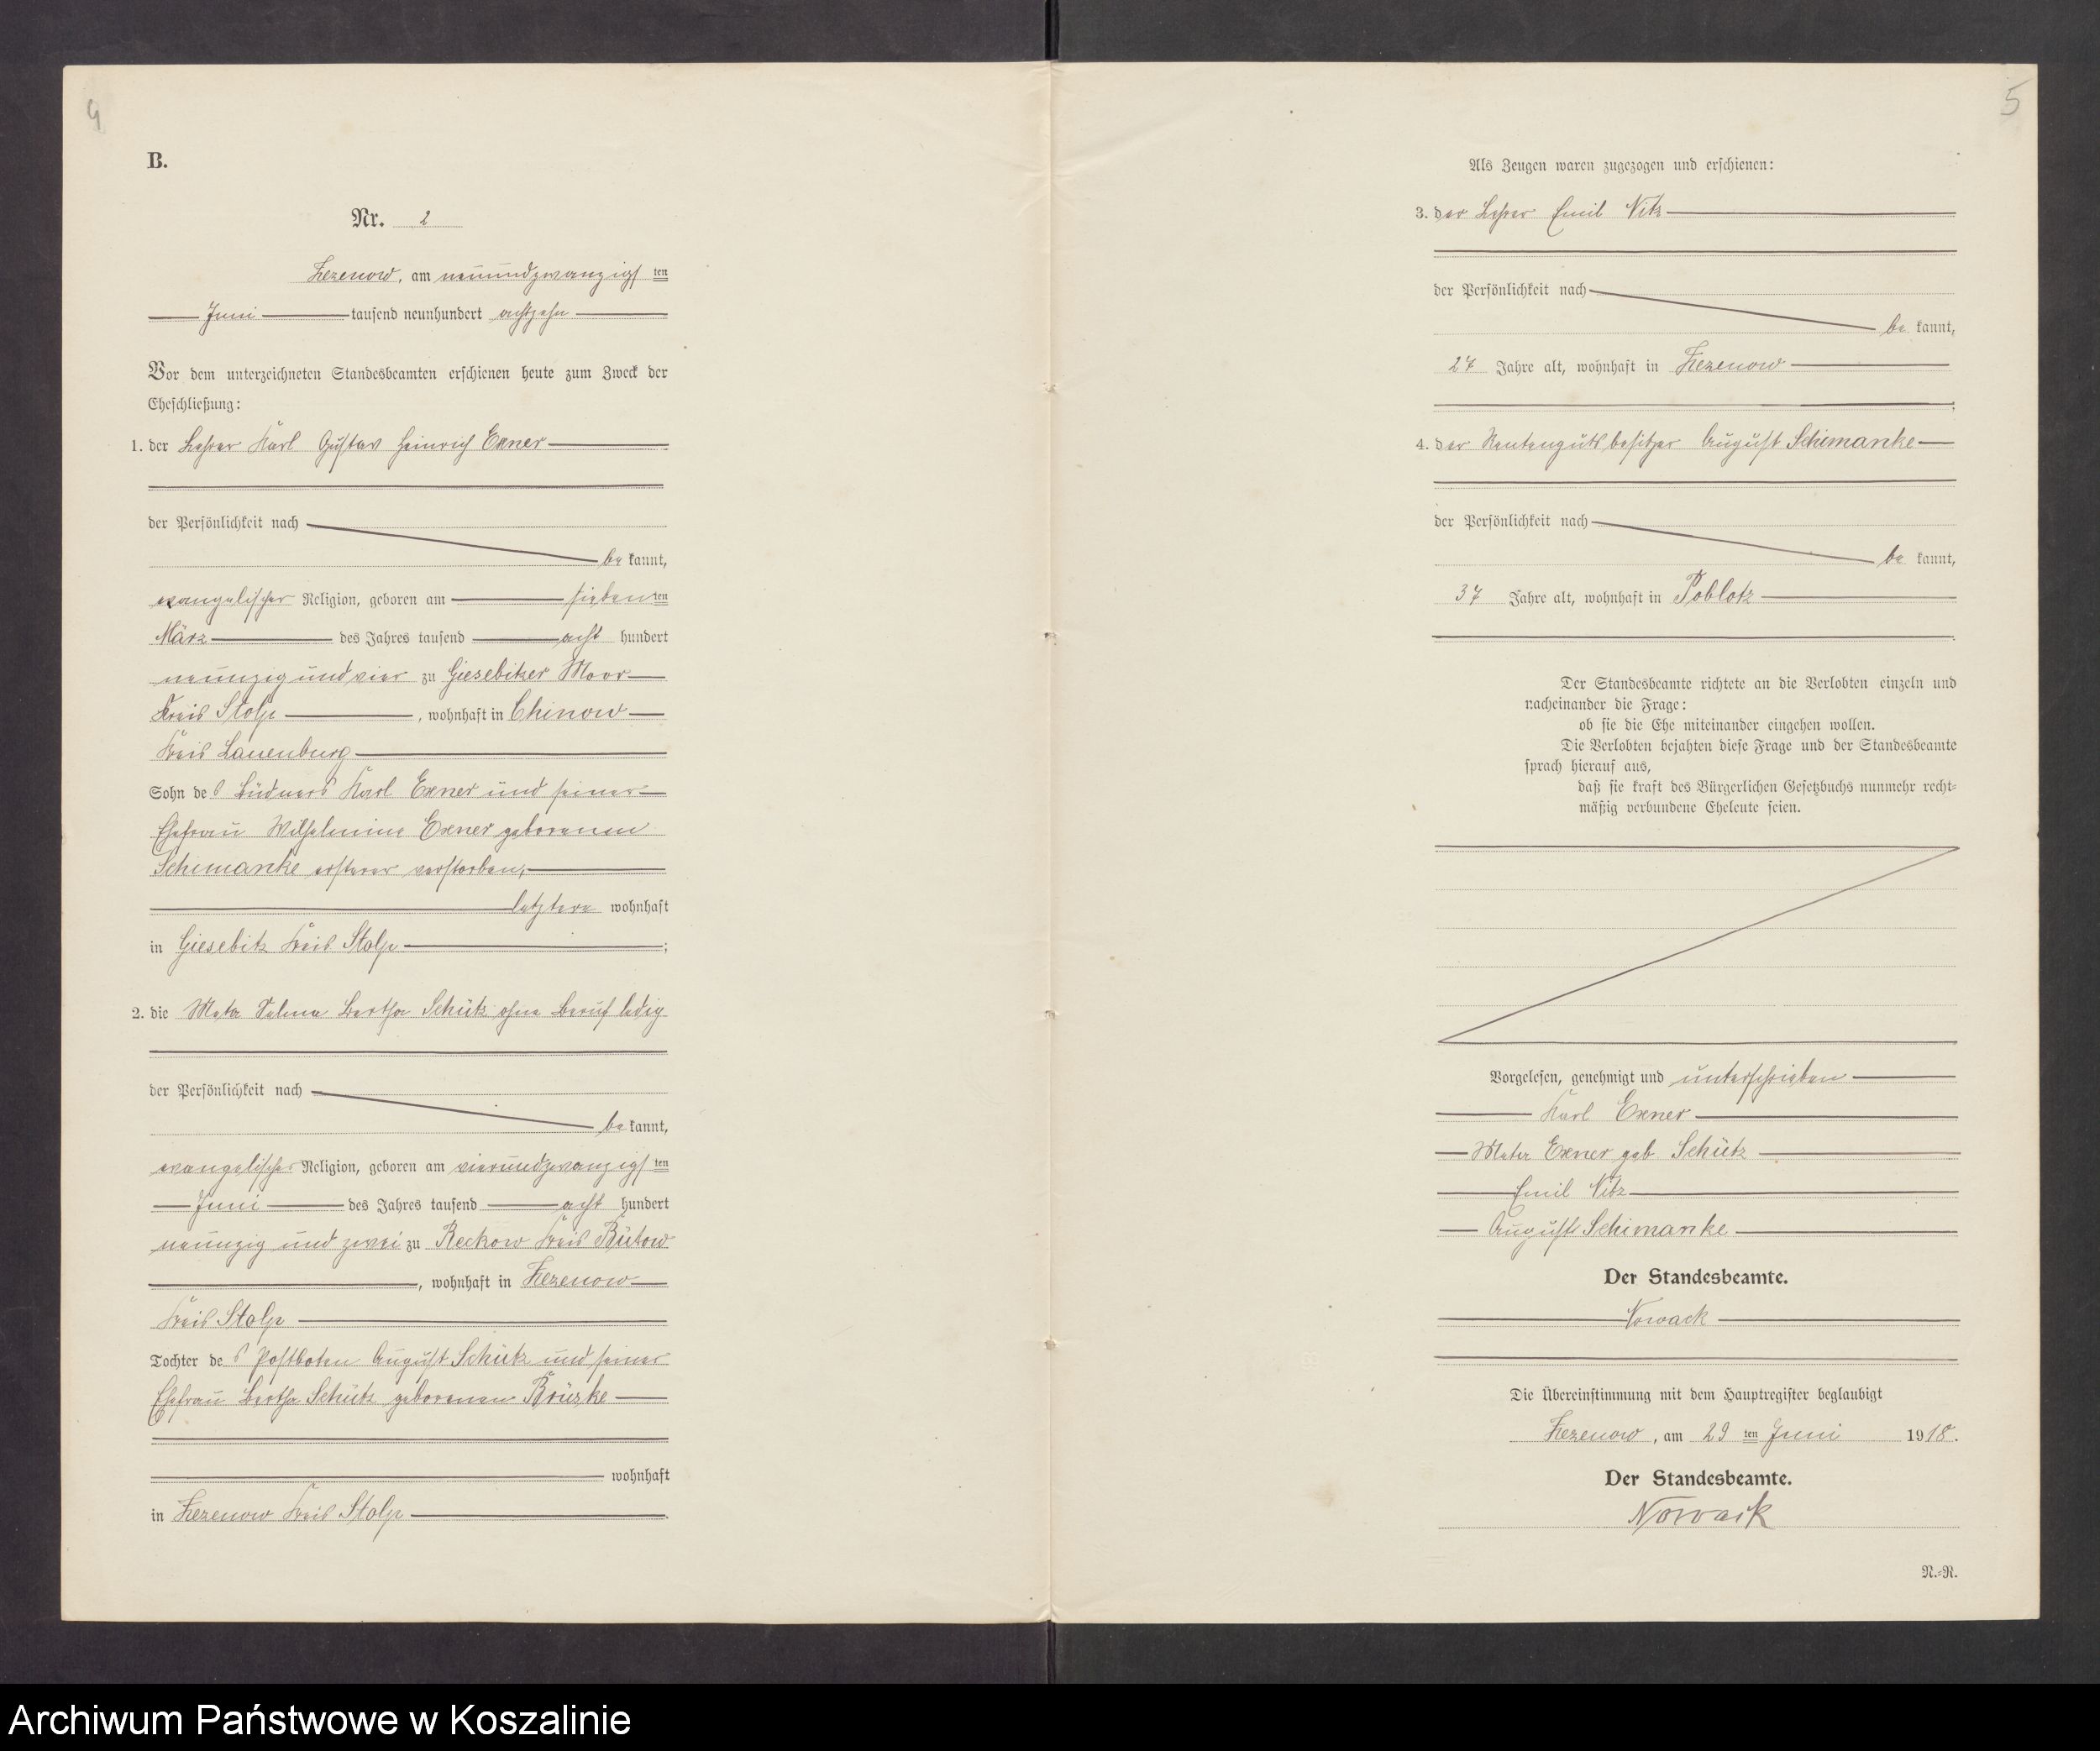 4
B.
Nr. 2
Zezenow, am neunundzwanzigsten
Juni tausend neunhundert achtzehn
Vor dem unterzeichneten Standesbeamten erschienen heute zum Zweck der
Eheschließung:
1. der Lehrer Karl Gustav Heinrich Exner
der Persönlichkeit nach
be kannt,
evangelischer Religion, geboren am siebenten
März des Jahres tausend acht hundert
neunzig und vier zu Giesebitzer Moor
Kreis Stolp, wohnhaft in Chinow
Kreis Lauenburg
Sohn des Büdners Karl Exner und seiner
Ehefrau Wilhelmine Exner geborenen
Schimanke ersterer verstorben,
letztere wohnhaft
in Giesebitz Kreis Stolp;
2. die Meta Selma Bertha Schütz ohne Beruf ledig
der Persönlichkeit nach
be kannt,
evangelischer Religion, geboren am vierundzwanzigsten
Juni des Jahres tausend acht hundert
neunzig und zwei zu Reckow Kreis Bütow
, wohnhaft in Zezenow
Kreis Stolp
Tochter des Postboten August Schütz und seiner
Ehefrau Bertha Schütz geborenen Brüske
wohnhaft
in Zezenow Kreis Stolp.
5
Als Zeugen waren zugezogen und erschienen:
3. der Lehrer Emil Nitz
der Persönlichkeit nach
be kannt,
27 Jahre alt, wohnhaft in Zezenow
;
4. der Rentengutsbesitzer August Schimanke
der Persönlichkeit nach
be kannt,
37 Jahre alt, wohnhaft in Poblotz
.
Der Standesbeamte richtete an die Verlobten einzeln und
nacheinander die Frage:
ob sie die Ehe miteinander eingehen wollen.
Die Verlobten bejahten diese Frage und der Standesbeamte
sprach hierauf aus,
daß sie kraft des Bürgerlichen Gesetzbuchs nunmehr recht-
mäßig verbundene Eheleute seien.
Vorgelesen, genehmigt und unterschrieben
Karl Exner
Meta Exner geb. Schütz
Emil Nitz
August Schimanke
Der Standesbeamte.
Nowack
Die Übereinstimmung mit dem Hauptregister beglaubigt
Zezenow, am 29 ten Juni 1918.
Der Standesbeamte.
Nowack
N.-R.
Archiwum Państwowe w Koszalinie